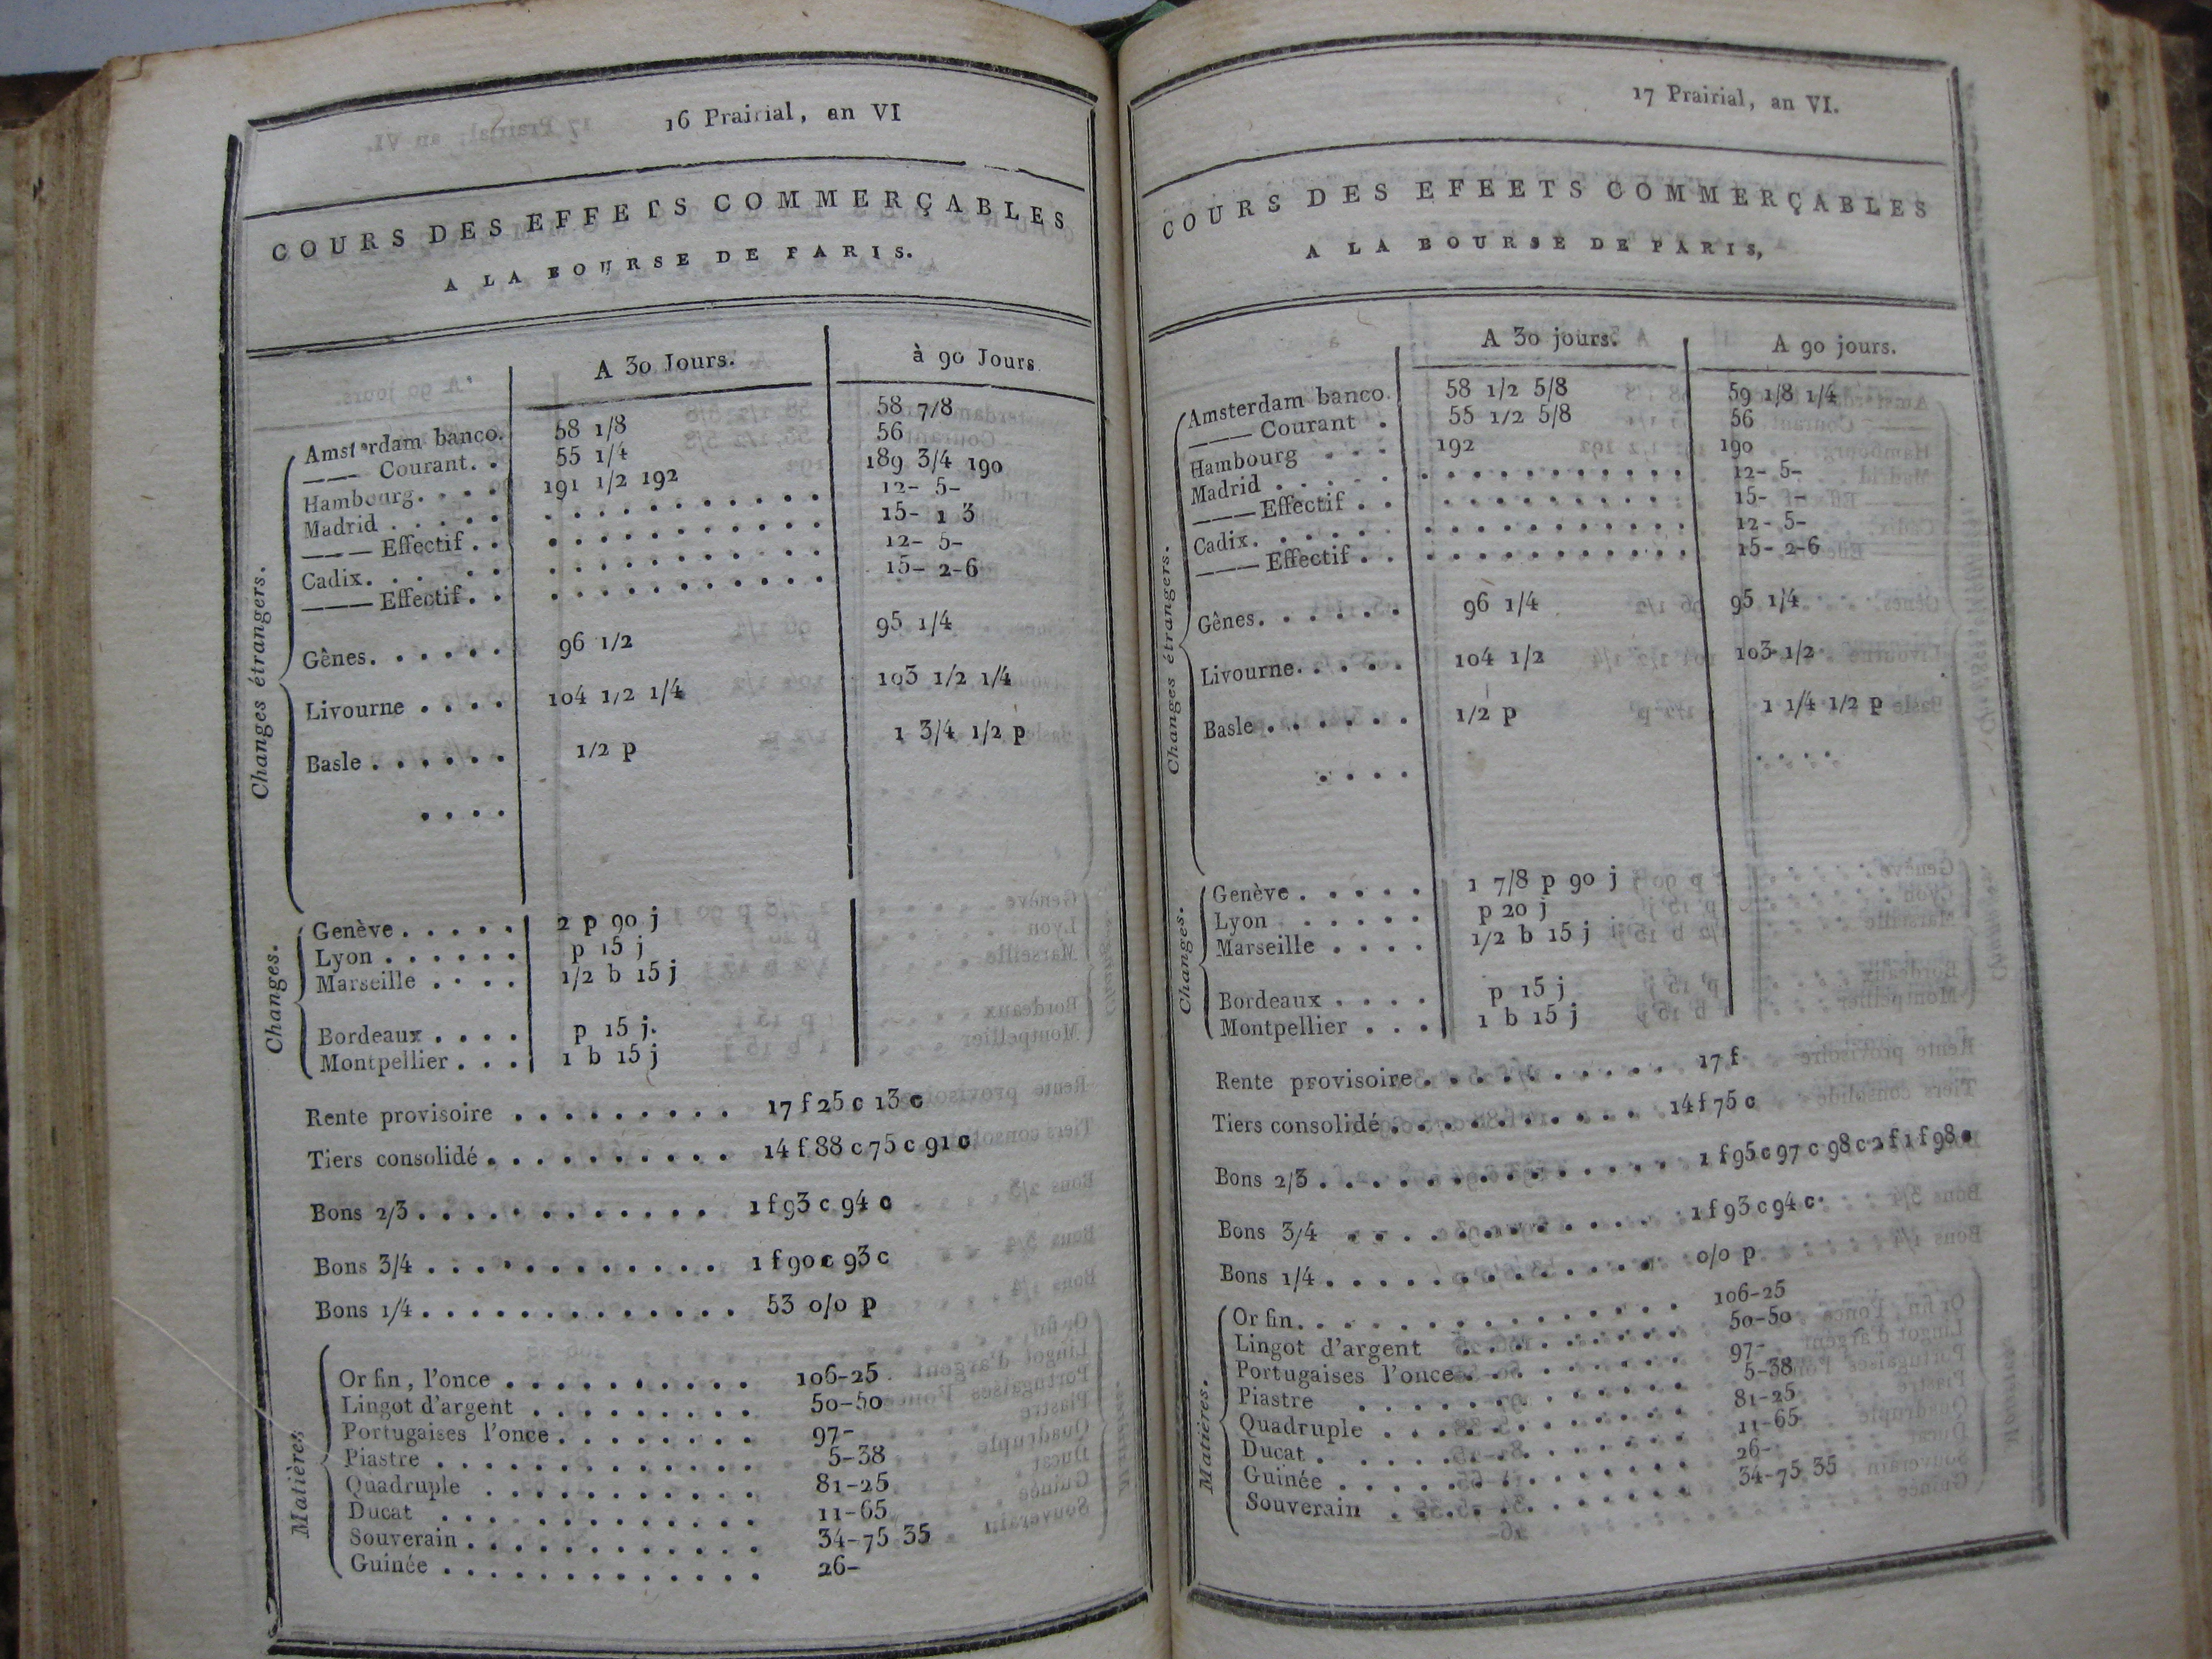 16 Prairial, an VI
COURS DES EFFETS COMMERÇABLES
A LA BOURSE DE PARIS.
A 30 Jours. à 90 Jours
Amsterdam banco. 58 1/8 58 7/8
——— Courant. . 55 1/4 56
Hambourg. . . . 191 1/2 192 189 3/4 190
Madrid . . . . . . . . . . . . . . . 12- 5-
——— Effectif . . . . . . . . . . . . 15- 1 3
Cadix. . . . . . . . . . . . . . . . 12- 5-
——— Effectif. . . . . . . . . . . . 15- 2-6
Gênes. . . . . . 96 1/2 95 1/4
Livourne . . . . 104 1/2 1/4 103 1/2 1/4
Basle . . . . . . 1/2 p 1 3/4 1/2 p
. . . .
Changes étrangers.
Genève . . . . . 2 p 90 j
Lyon . . . . . . p 15 j
Marseille . . . . 1/2 b 15 j
Bordeaux . . . . p 15 j.
Montpellier . . . 1 b 15 j
Changes.
Rente provisoire . . . . . . . . . 17 f 25 c 13 c
Tiers consolidé . . . . . . . . . . 14 f 88 c 75 c 91 c
Bons 2/3 . . . . . . . . . . . . 1 f 93 c 94 c
Bons 3/4 . . . . . . . . . . . . 1 f 90 c 93 c
Bons 1/4 . . . . . . . . . . . . . 53 0/0 p
Or fin, l'once . . . . . . . . . . 106-25
Lingot d'argent . . . . . . . . . 50-50
Portugaises l'once . . . . . . . . 97-
Piastre . . . . . . . . . . . . . 5-38
Quadruple . . . . . . . . . . . 81-25
Ducat . . . . . . . . . . . . . 11-65
Souverain . . . . . . . . . . . . 34-75 35
Guinée . . . . . . . . . . . . . 26-
Matières
17 Prairial, an VI.
COURS DES EFEETS COMMERÇABLES
A LA BOURSE DE PARIS,
A 30 jours. A 90 jours.
Amsterdam banco. 58 1/2 5/8 59 1/8 1/4
——— Courant . 55 1/2 5/8 56
Hambourg . . . 192 190
Madrid . . . . . . . . . . . . . . . 12- 5-
——— Effectif . . . . . . . . . . . . 15-
Cadix. . . . . . . . . . . . . . . . 12- 5-
——— Effectif . . . . . . . . . . . . 15- 2-6
Gênes. . . . . . 96 1/4 95 1/4
Livourne. . . . . 104 1/2 103 1/2
Basle . . . . . . 1/2 p 1 1/4 1/2 p
. . . . . . . .
Changes étrangers.
Genève . . . . . 1 7/8 p 90 j
Lyon . . . . . . p 20 j
Marseille . . . . 1/2 b 15 j
Bordeaux . . . . p 15 j
Montpellier . . . 1 b 15 j
Changes.
Rente provisoire . . . . . . . . . . 17 f
Tiers consolidé . . . . . . . . . . 14 f 75 c
Bons 2/3 . . . . . . . . . . . . . 1 f 95 c 97 c 98 c 2 f 1 f 98 c
Bons 3/4 . . . . . . . . . . . . 1 f 93 c 94 c
Bons 1/4 . . . . . . . . . . . . . 0/0 p
Or fin. . . . . . . . . . . . . . 106-25
Lingot d'argent . . . . . . . . . 50-50
Portugaises l'once . . . . . . . . 97-
Piastre . . . . . . . . . . . . 5-38
Quadruple . . . . . . . . . . . 81-25
Ducat . . . . . . . . . . . . . 11-65
Guinée . . . . . . . . . . . . . 26-
Souverain . . . . . . . . . . . 34-75 35
Matières.